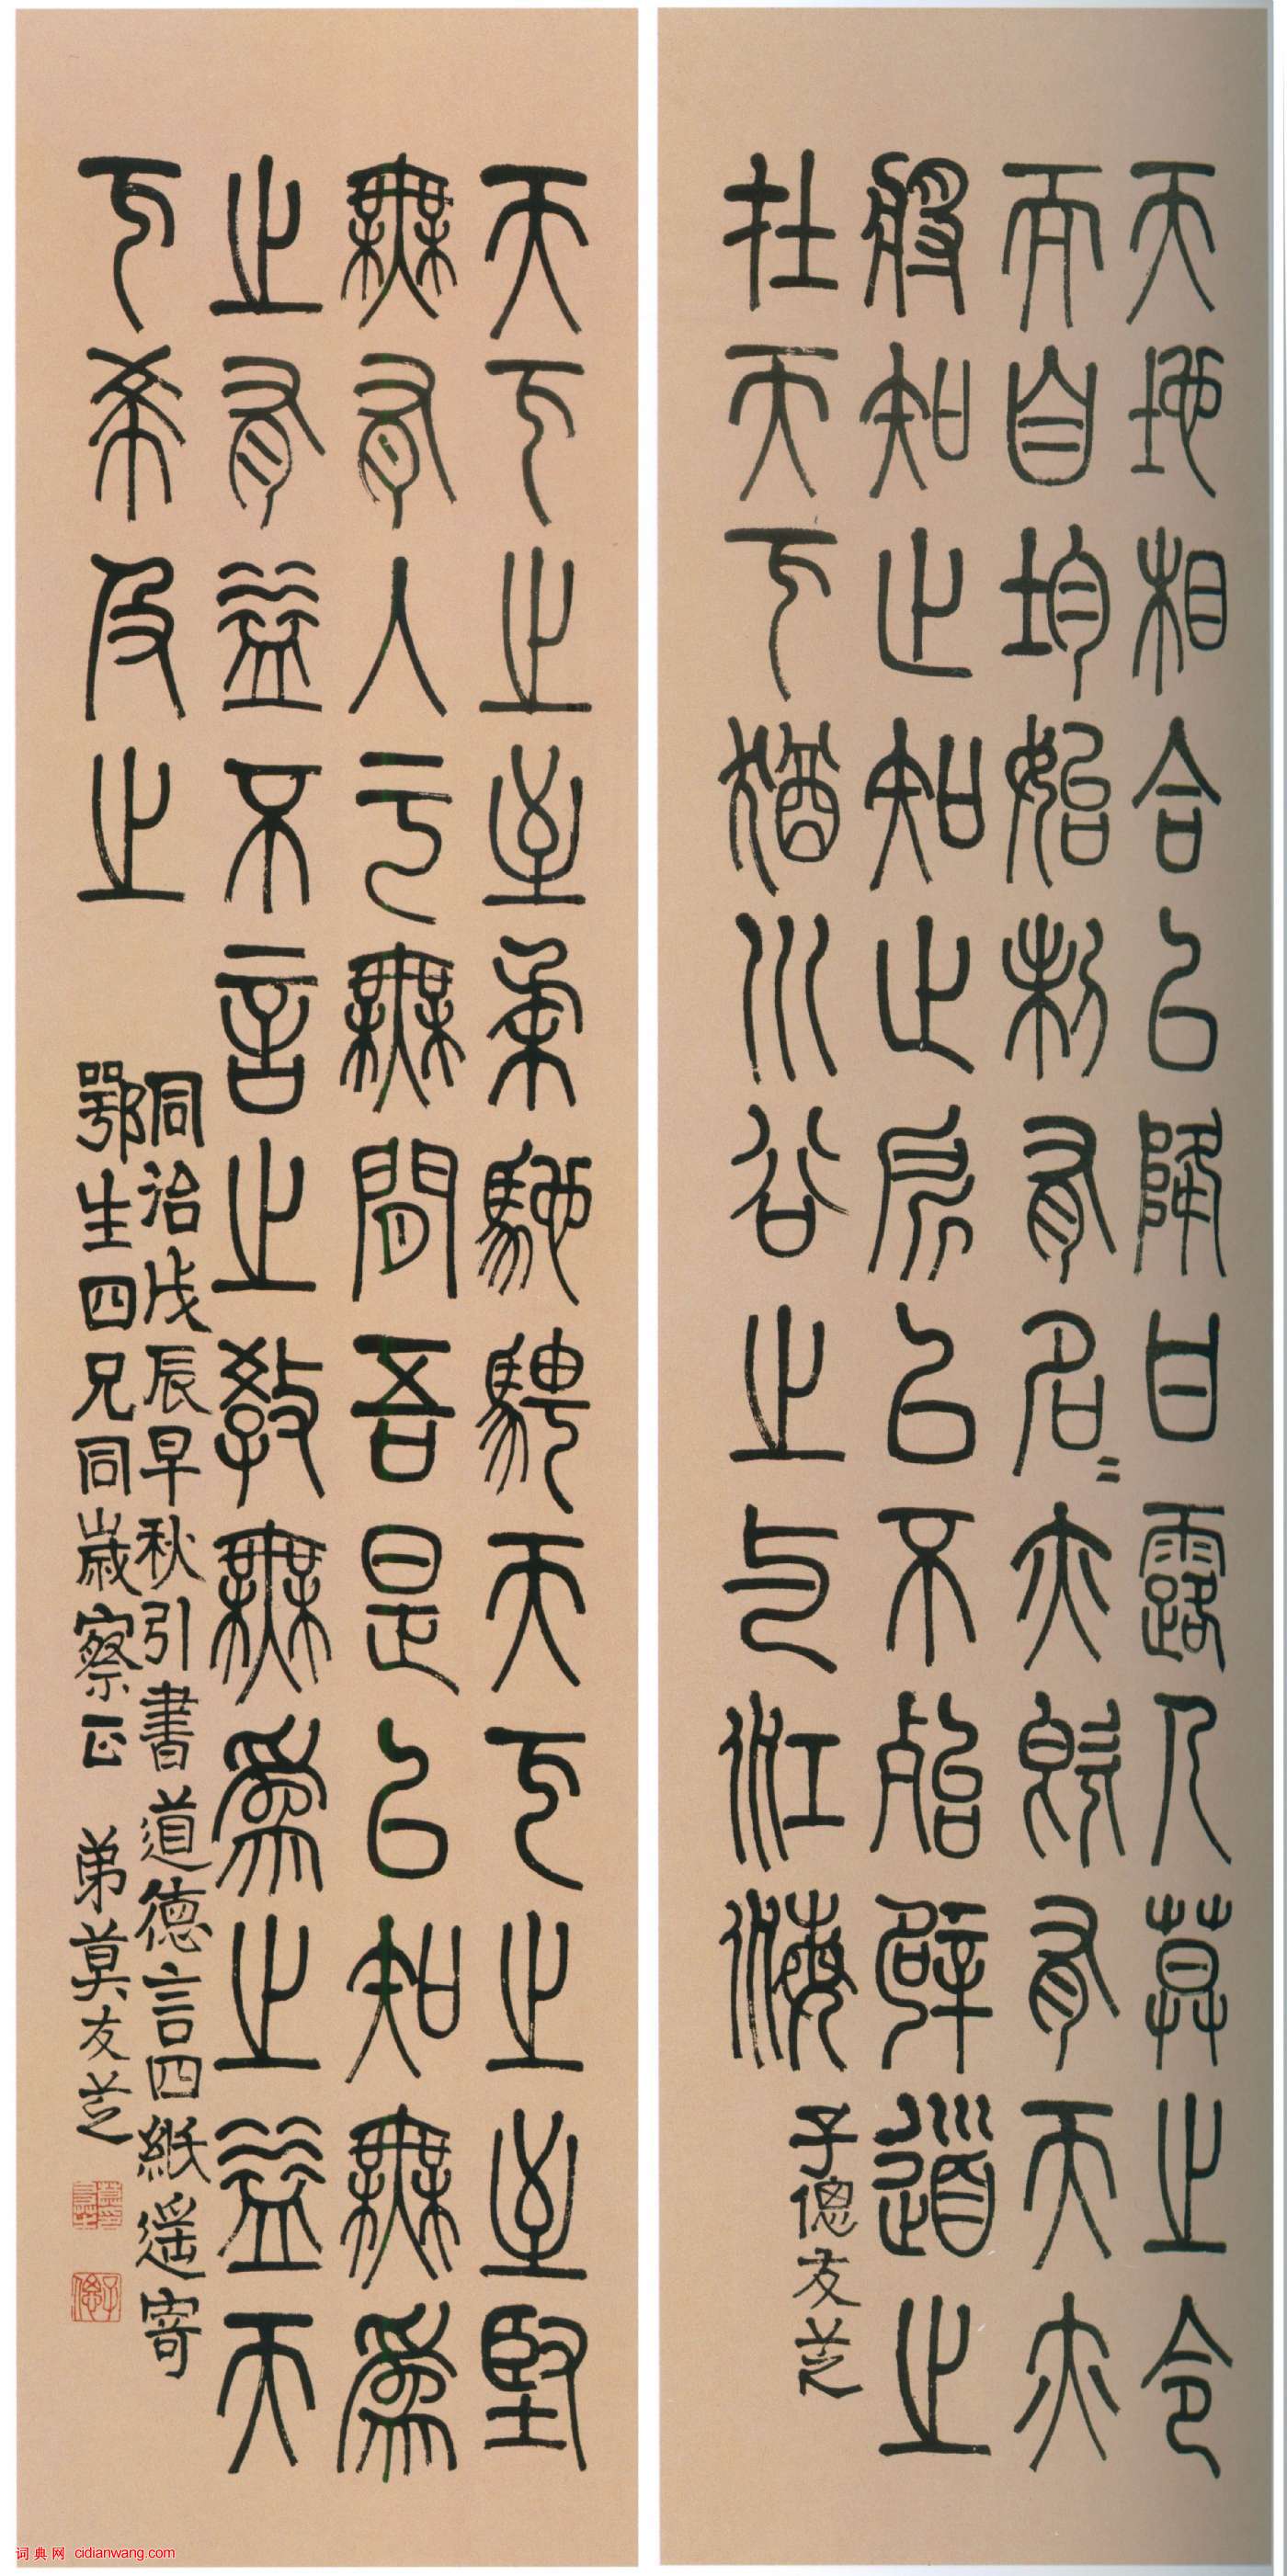 天地相合㠯降甘露人莫之令
而自均始制有名〻亦既有天亦
將知止知止所㠯不殆譬道之
在天下猶川谷之与江海
子偲友芝
天下之至柔馳騁天下之至堅
無有入于無間吾是㠯知無為
之有益不言之教無為之益天
下希及之
同治戊辰早秋引書道德言四紙遥寄
鄂生四兄同歲察正 弟莫友芝
子偲
词典网 cidianwang.com